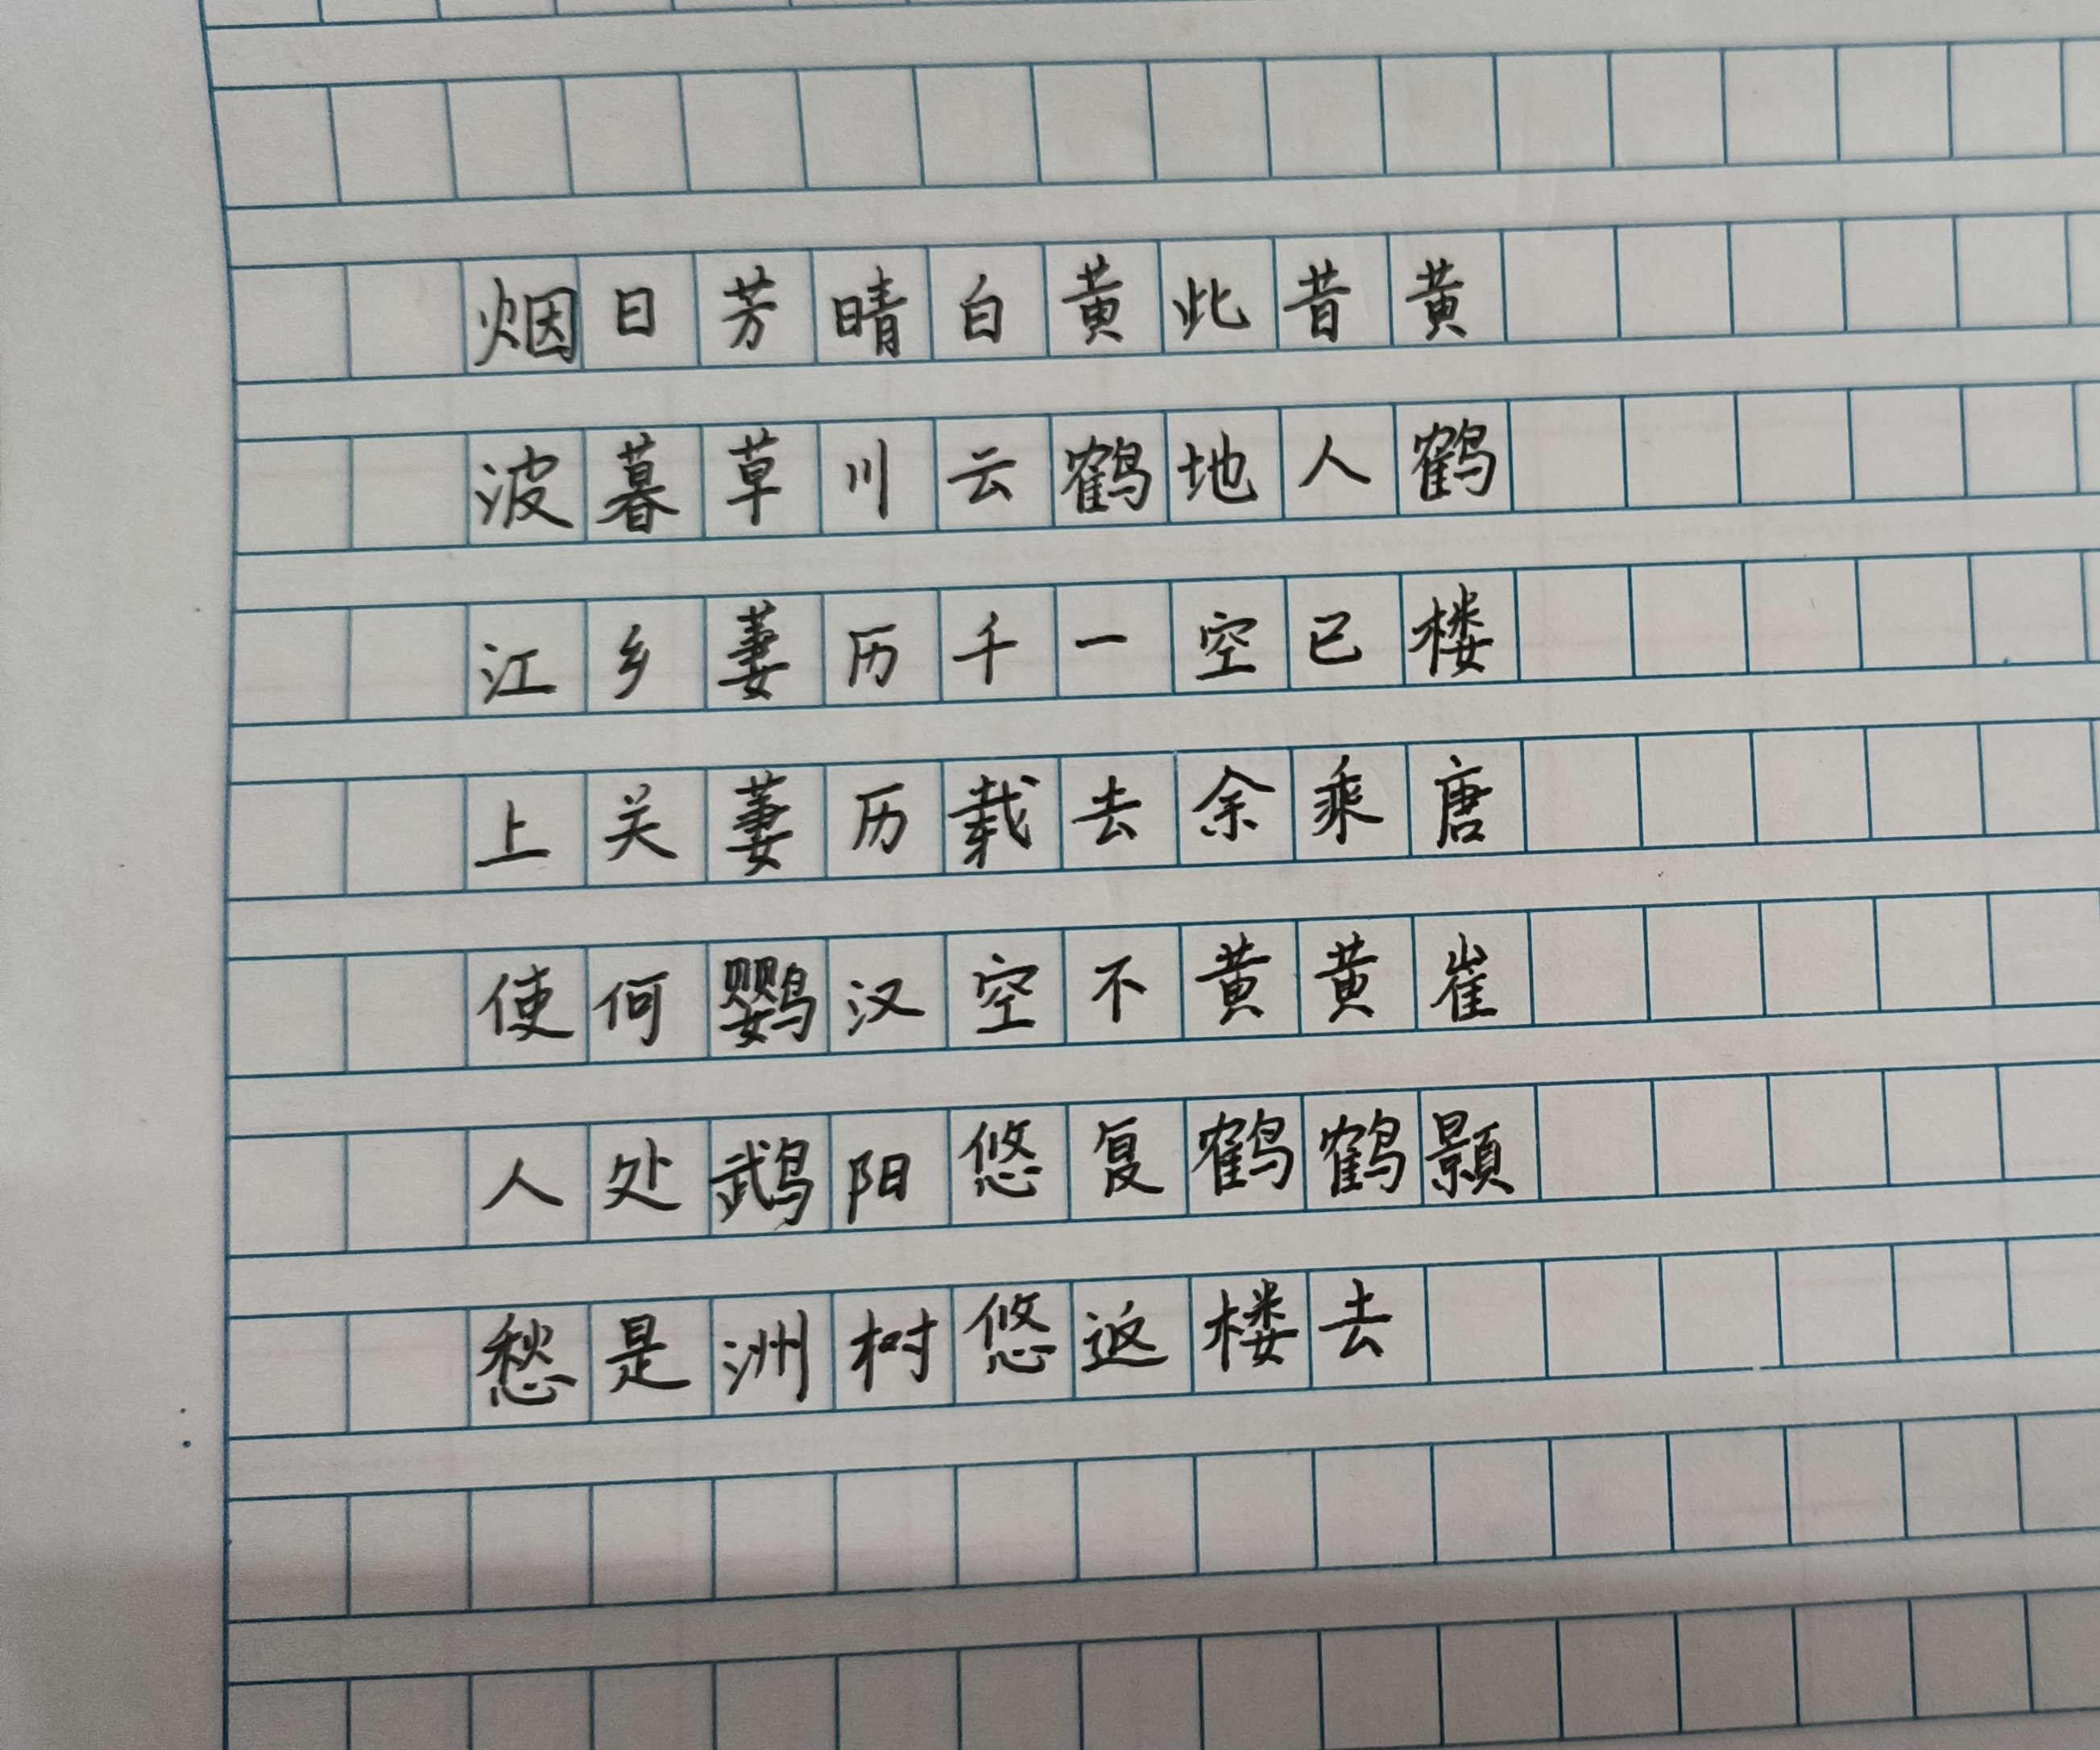 黄鹤楼唐崔颢
昔人已乘黄鹤去
此地空余黄鹤楼
黄鹤一去不复返
白云千载空悠悠
晴川历历汉阳树
芳草萋萋鹦鹉洲
日暮乡关何处是
烟波江上使人愁